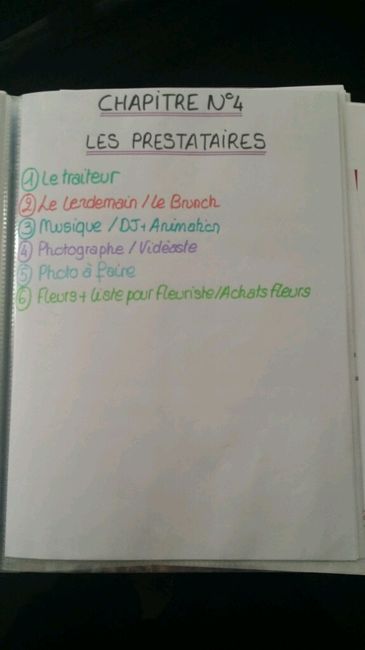 CHAPITRE N°4
LES PRESTATAIRES
1 Le traiteur
2 Le Lendemain / Le Brunch
3 Musique / DJ + Animation
4 Photographe / Vidéaste
5 Photo à faire
6 Fleurs + Liste pour fleuriste/Achats fleurs